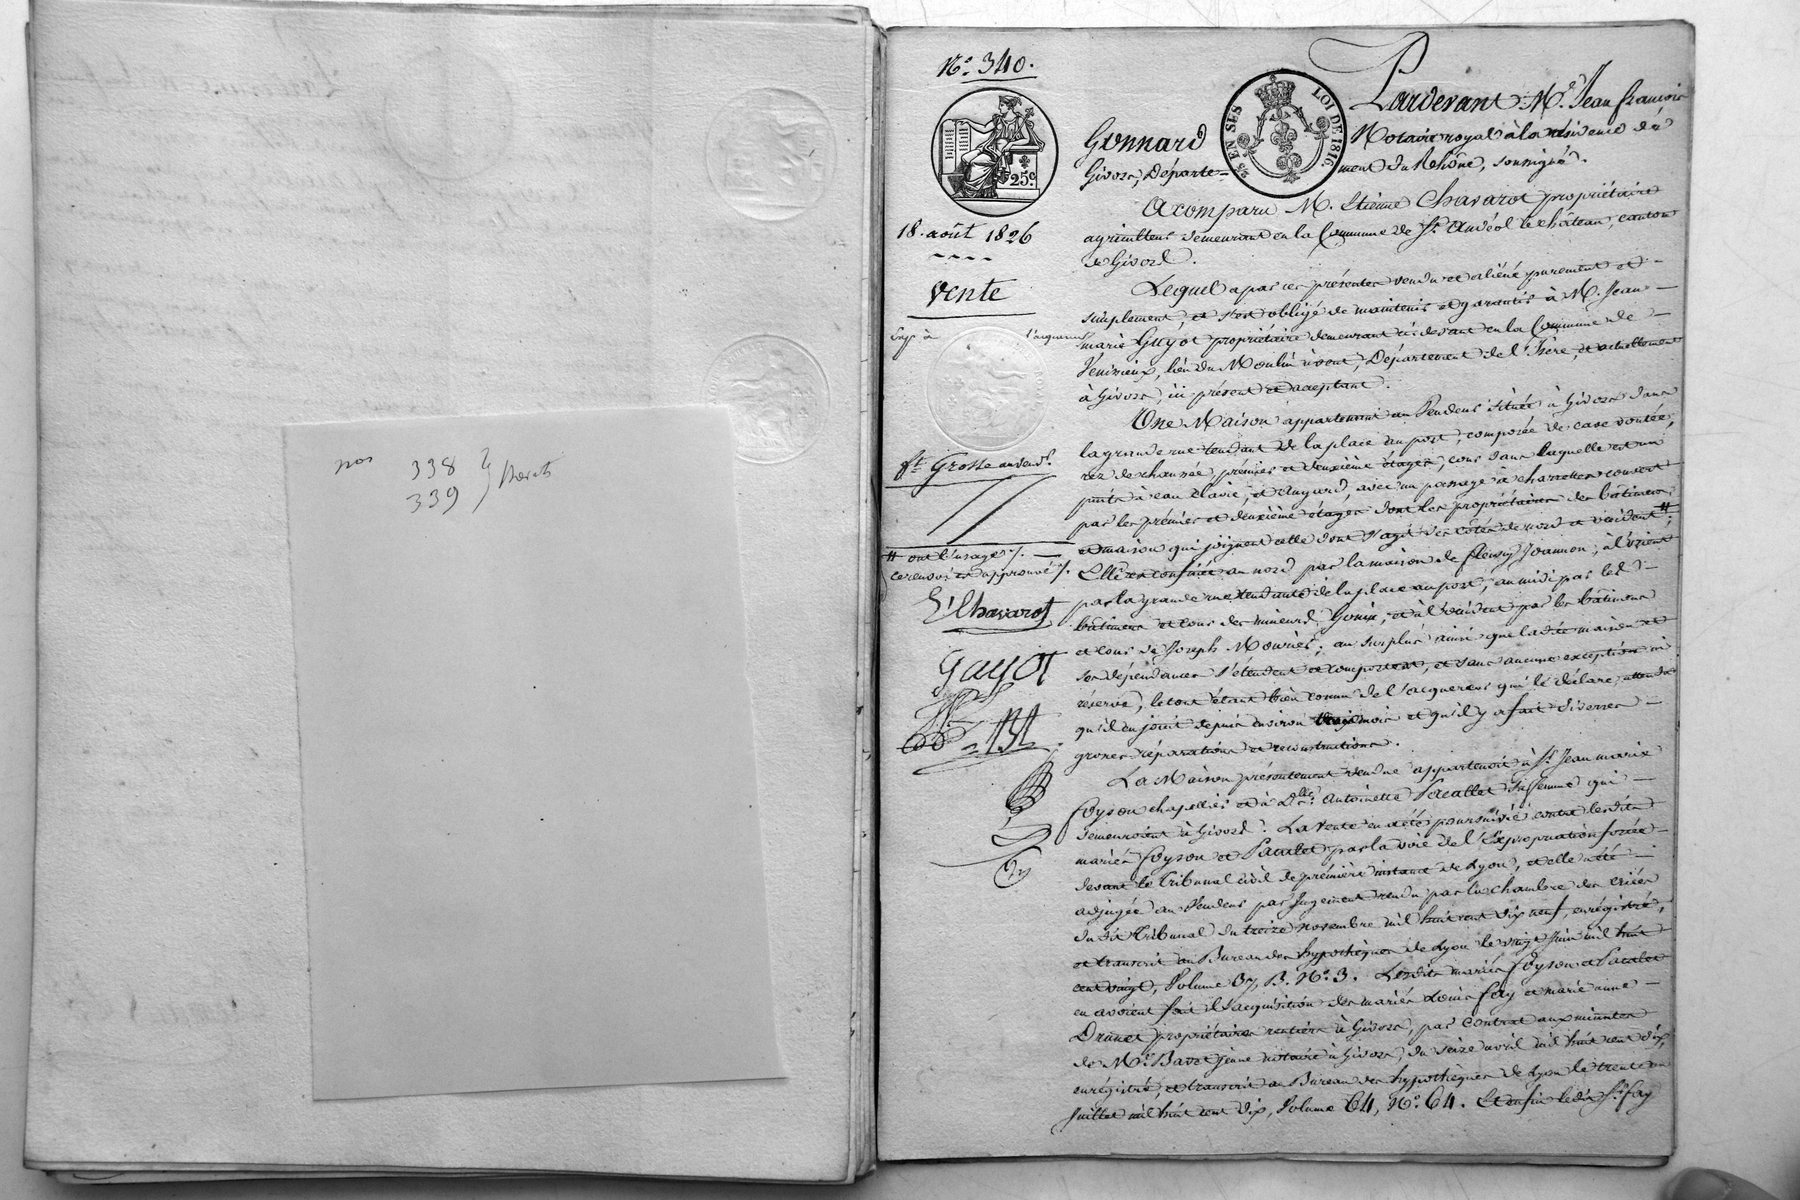 nos 338
339
N.° 340.
25.c
18. août 1826
Vente
Exp. à l'acquereur
f.t Grosse au vend.r
# ont l'usage ./.
ce renvoi est approuvé ./.
E.t Chavarot
Guyot
25 EN SES LOI DE 1816
Pardevant M.e Jean françois
Gonnard Notaire royal à la résidence de
Givors, Départe= ment du Rhône, soussigné.
A comparu M. Etienne Chavarot propriétaire
agriculteur demeurant en la Commune de St. Andéol le château, canton
de Givors.
Lequel a par ces présentes vendu et aliéné purement et
simplement, et s'est obligé de maintenir et garantir à M. Jean
marie Guyot propriétaire demeurant ci-devant en la Commune de
Venissieux, lieu du Moulin à vent, Département de l'Isère, et actuellement
à Givors, ici présent et acceptant.
Une Maison appartenant au Vendeur située à Givors dans
la grande rue tendant de la place au port, composée de cave voutée,
rez de chaussée, premier et deuxième étages, cour dans laquelle est un
puits à eau claire, et hangard, avec un passage à charrettes couvert
par les premier et deuxième étages dont les propriétaires des bâtimens
et maison qui joignent celle dont s'agit des côtés de nord et occident #.
Elle est confinée au nord par la maison de fleury Joannon, à l'orient
par la grande rue tendante de la place au port, au midi par les
bâtimens et cour des mineurs Gonin, et à l'occident par les bâtimens
et cour de Joseph Mouriès; au surplus ainsi que ladite maison et
ses dépendances s'étendent et comportent, et sans aucune exception ni
réserve, le tout étant bien connu de l'acquereur qui le déclare, attendu
qu'il en jouit depuis environ mois et qu'il y a fait diverses
grosses réparations et reconstructions.
La Maison présentement vendue appartenoit à Sr. Jean marie
foyson chapelier et à D.lle Antoinette Pacallet sa femme qui
demeuroient à Givors. La vente en a été poursuivie contre lesdits
mariés foyson et Pacalet par la voie de l'Expropriation forcée
devant le Tribunal civil de première instance de Lyon, et elle a été
adjugée au Vendeur par Jugement rendu par la chambre des criées
du dit Tribunal du treize novembre mil huit cent dix neuf, enregistré,
et transcrit au Bureau des hypothèques de Lyon le vingt Juin mil huit
cent vingt, Volume 87, B. N.° 3. Lesdits mariés foyson et Pacalet
en avoient fait l'acquisition des mariés Louis fay et marie anne
Drunet propriétaires rentiers à Givors, par contrat aux minutes
de M.e Bavet jeune notaire à Givors, du seize avril mil huit cent dix,
enregistré, et transcrit au Bureau des hypothèques de Lyon le trente un
Juillet mil huit cent dix, Volume 64, N.° 64. Et enfin ledit Sr. fay